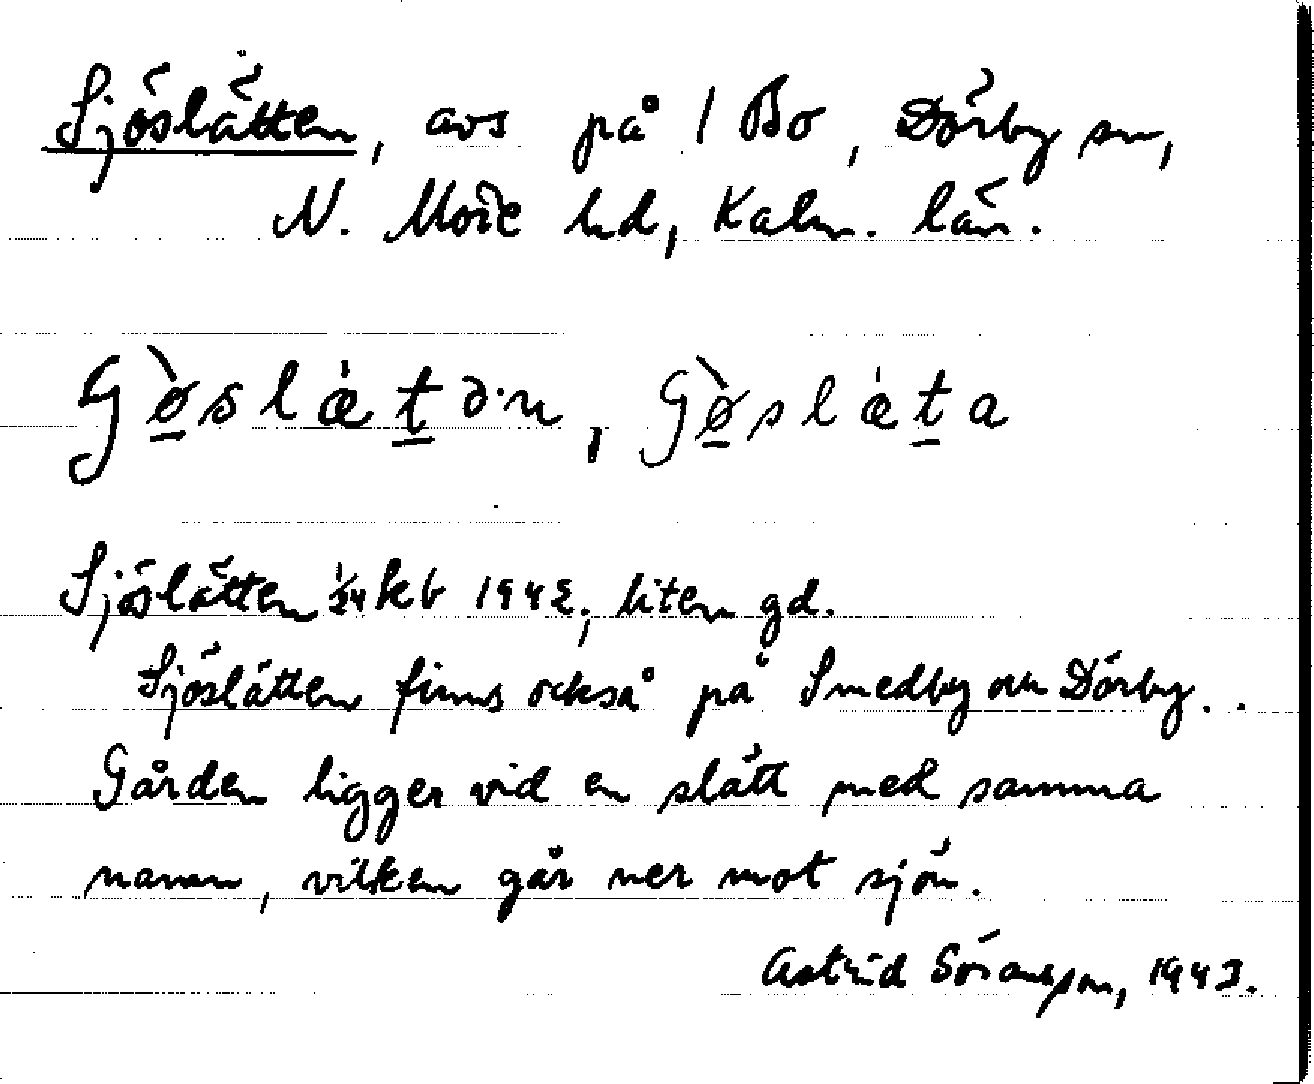 Sjöslätten, avs på 1 Bo, Dörby sn,
N. Möre hd, Kalm. län.
Gø̀slæ̍tən, Gø̀slæ̍ta
Sjöslätten 1/24 kb 1942; liten gd.
Sjöslätten finns också på Smedby om Dörby..
Gården ligger vid en slätt med samma
namn, vilken går ner mot sjön.
Astrid, 1943.